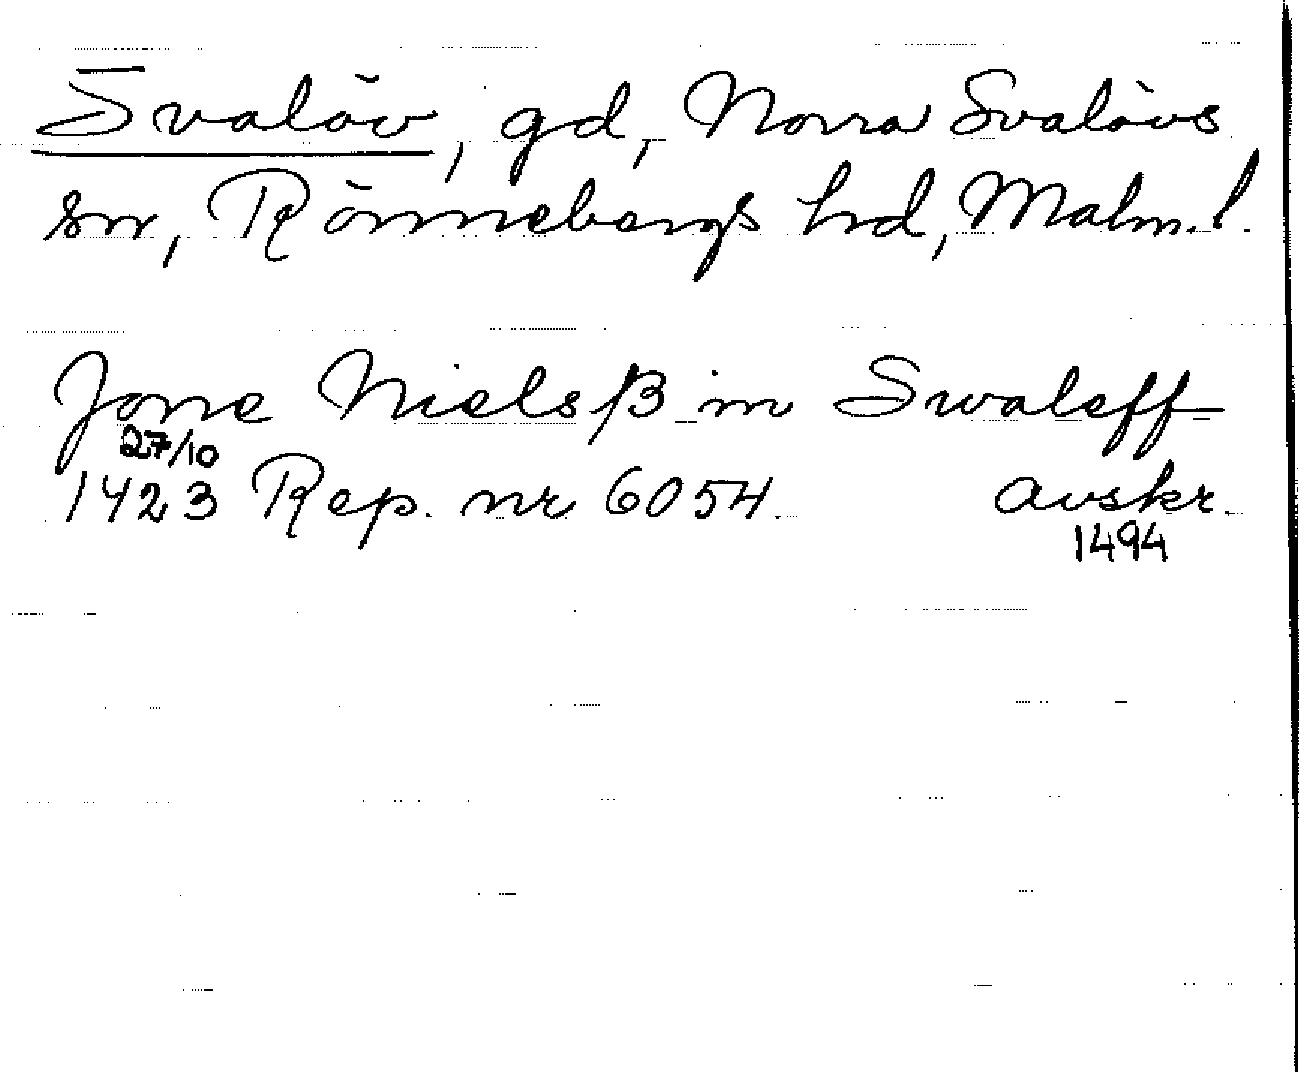 Svalöv, gd, Norra Svalövs
sn, Rönnebergs hrd, Malm. l.
Jone Nielsß in Swaleff
27/10
1423 Rep. nr 6054. avskr.
1494